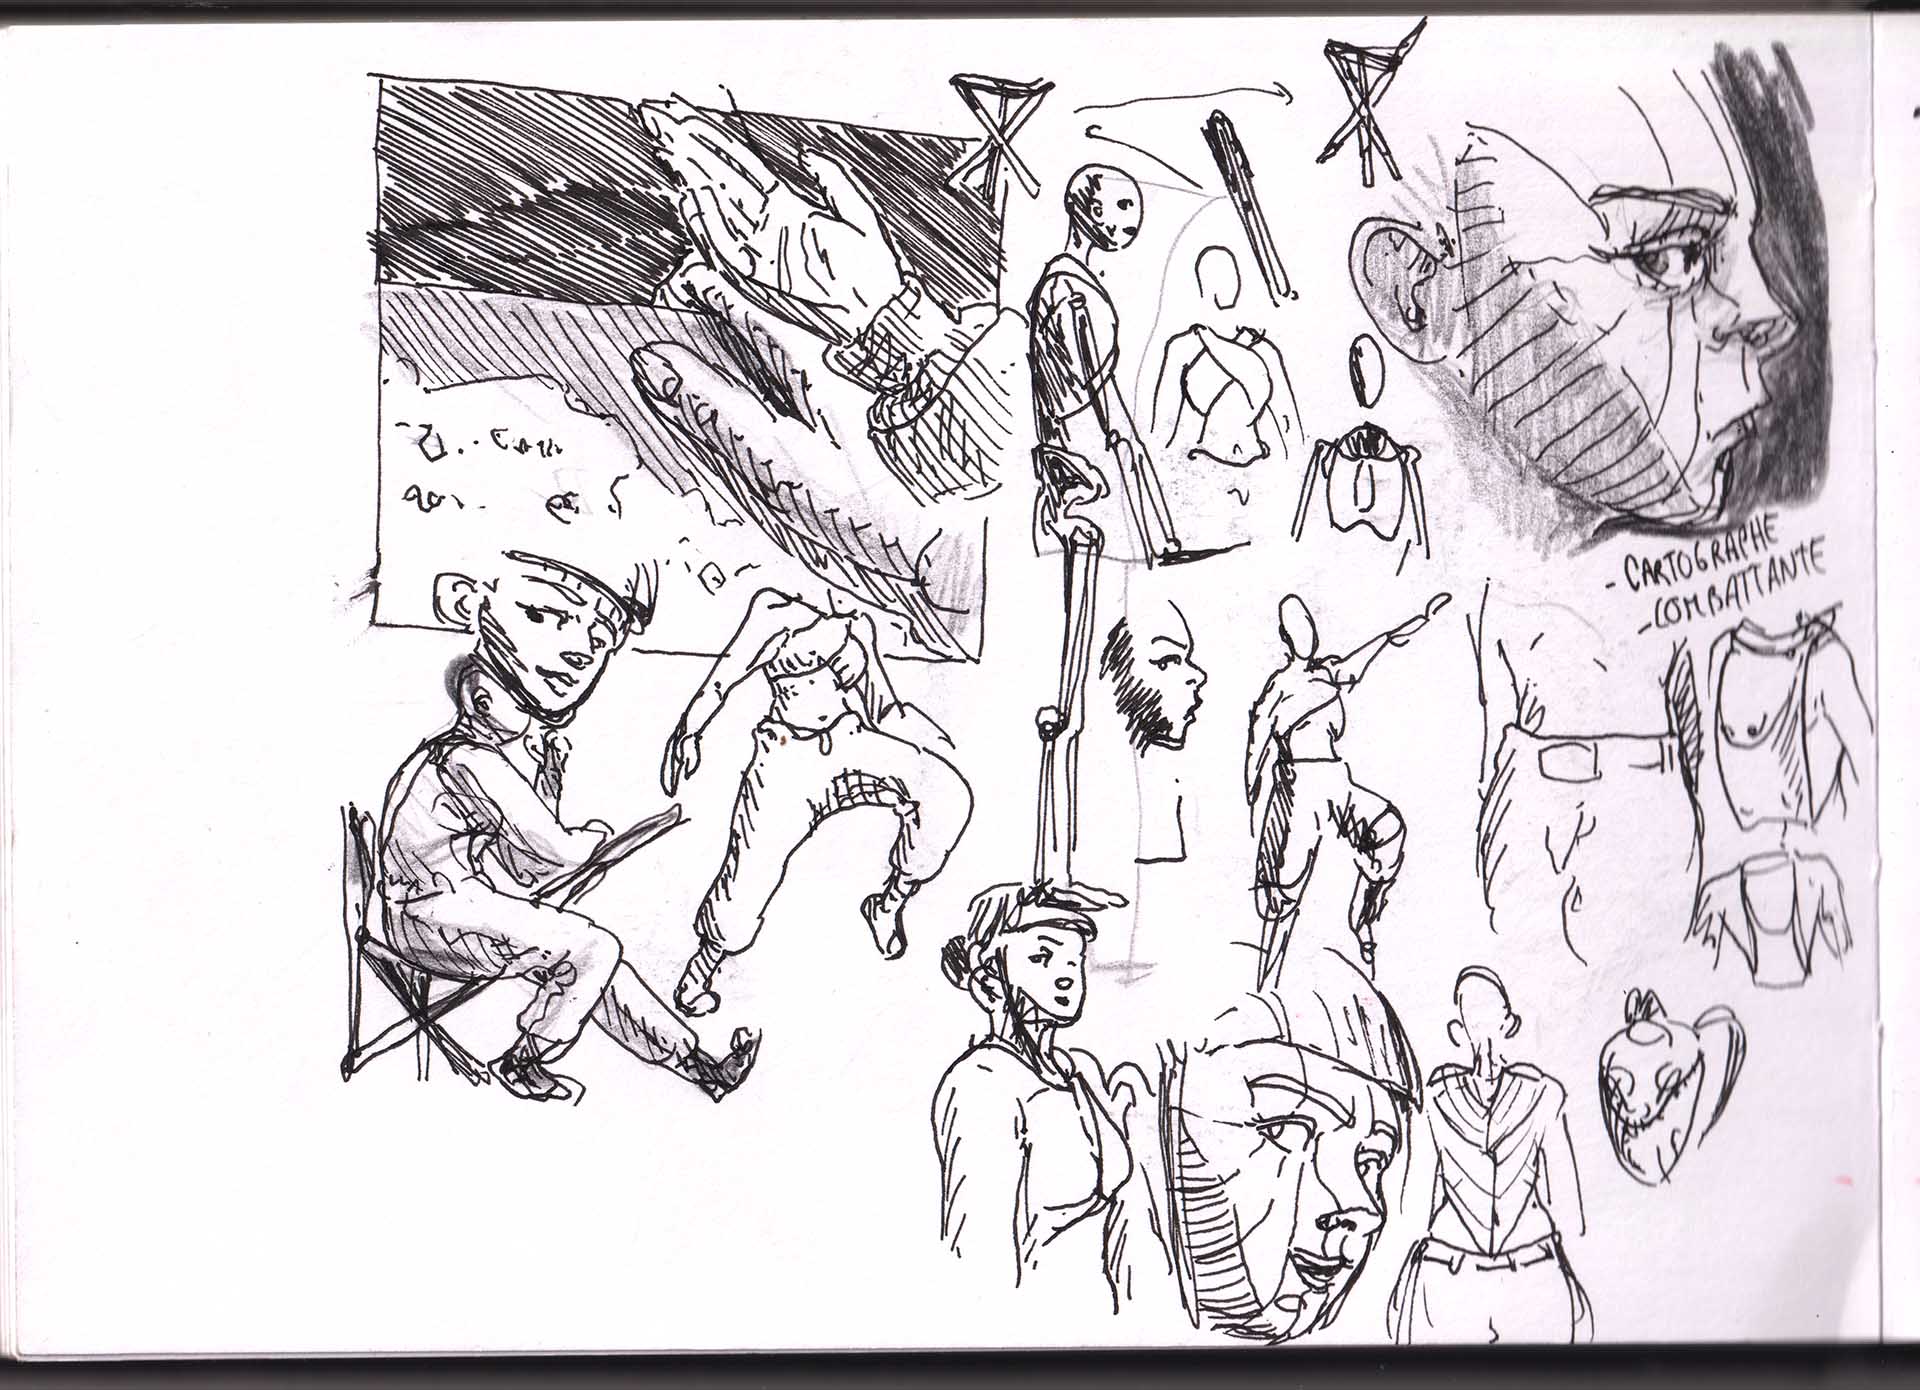 - CARTOGRAPHE
- COMBATTANTE